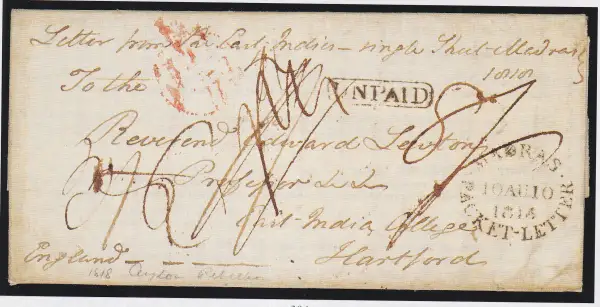 Letter from the East Indies - single Sheet Madras
1818
To the
UNPAID
Reverend Edward Lewton
Professor
MADRAS.
10 AU 10
1818
PACKET-LETTER
East-India College
Hartford
England
1818